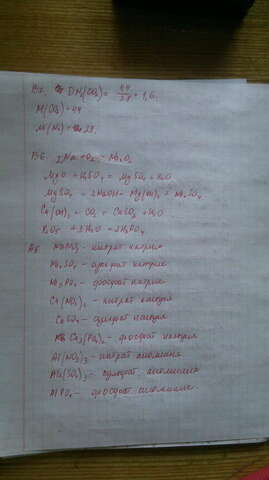 В7. D N₂(CO₂) = 44/28 = 1,6.
M(CO₂) = 44
M(N₂) = 28.
В6. 2Na + O₂ = Na₂O₂
MgO + H₂SO₄ = MgSO₄ + H₂O
MgSO₄ + 2NaOH = Mg(OH)₂ + Na₂SO₄
Ca(OH)₂ + CO₂ = CaCO₃ + H₂O
P₂O₅ + 3H₂O = 2H₃PO₄
NaNO₃ - нитрат натрия
Na₂SO₄ - сульфат натрия
Na₃PO₄ - фосфат натрия
Ca(NO₃)₂ - нитрат кальция
CaSO₄ - сульфат кальция
Ca₃(PO₄)₂ - фосфат кальция
Al(NO₃)₃ - нитрат алюминия
Al₂(SO₄)₃ - сульфат алюминия
AlPO₄ - фосфат алюминия